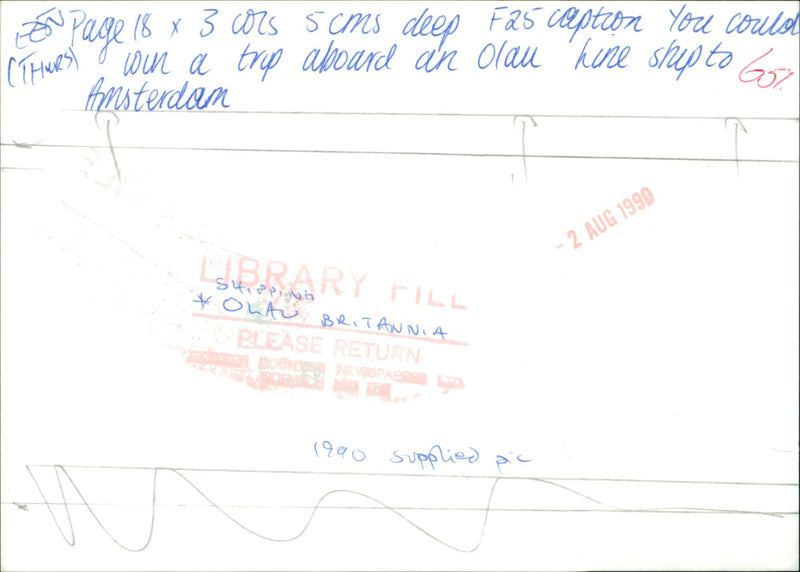 EEN Page 18 x 3 cols 5 cms deep F25 caption You could
(THURS) win a trip aboard an Olau Line ship to 65%
Amsterdam
- 2 AUG 1990
LIBRARY FILE
SHIPPING
* OLAU BRITANNIA
PLEASE RETURN
EASTERN COUNTIES NEWSPAPERS LTD
NORWICH NR1 1RE
1990 supplied pic